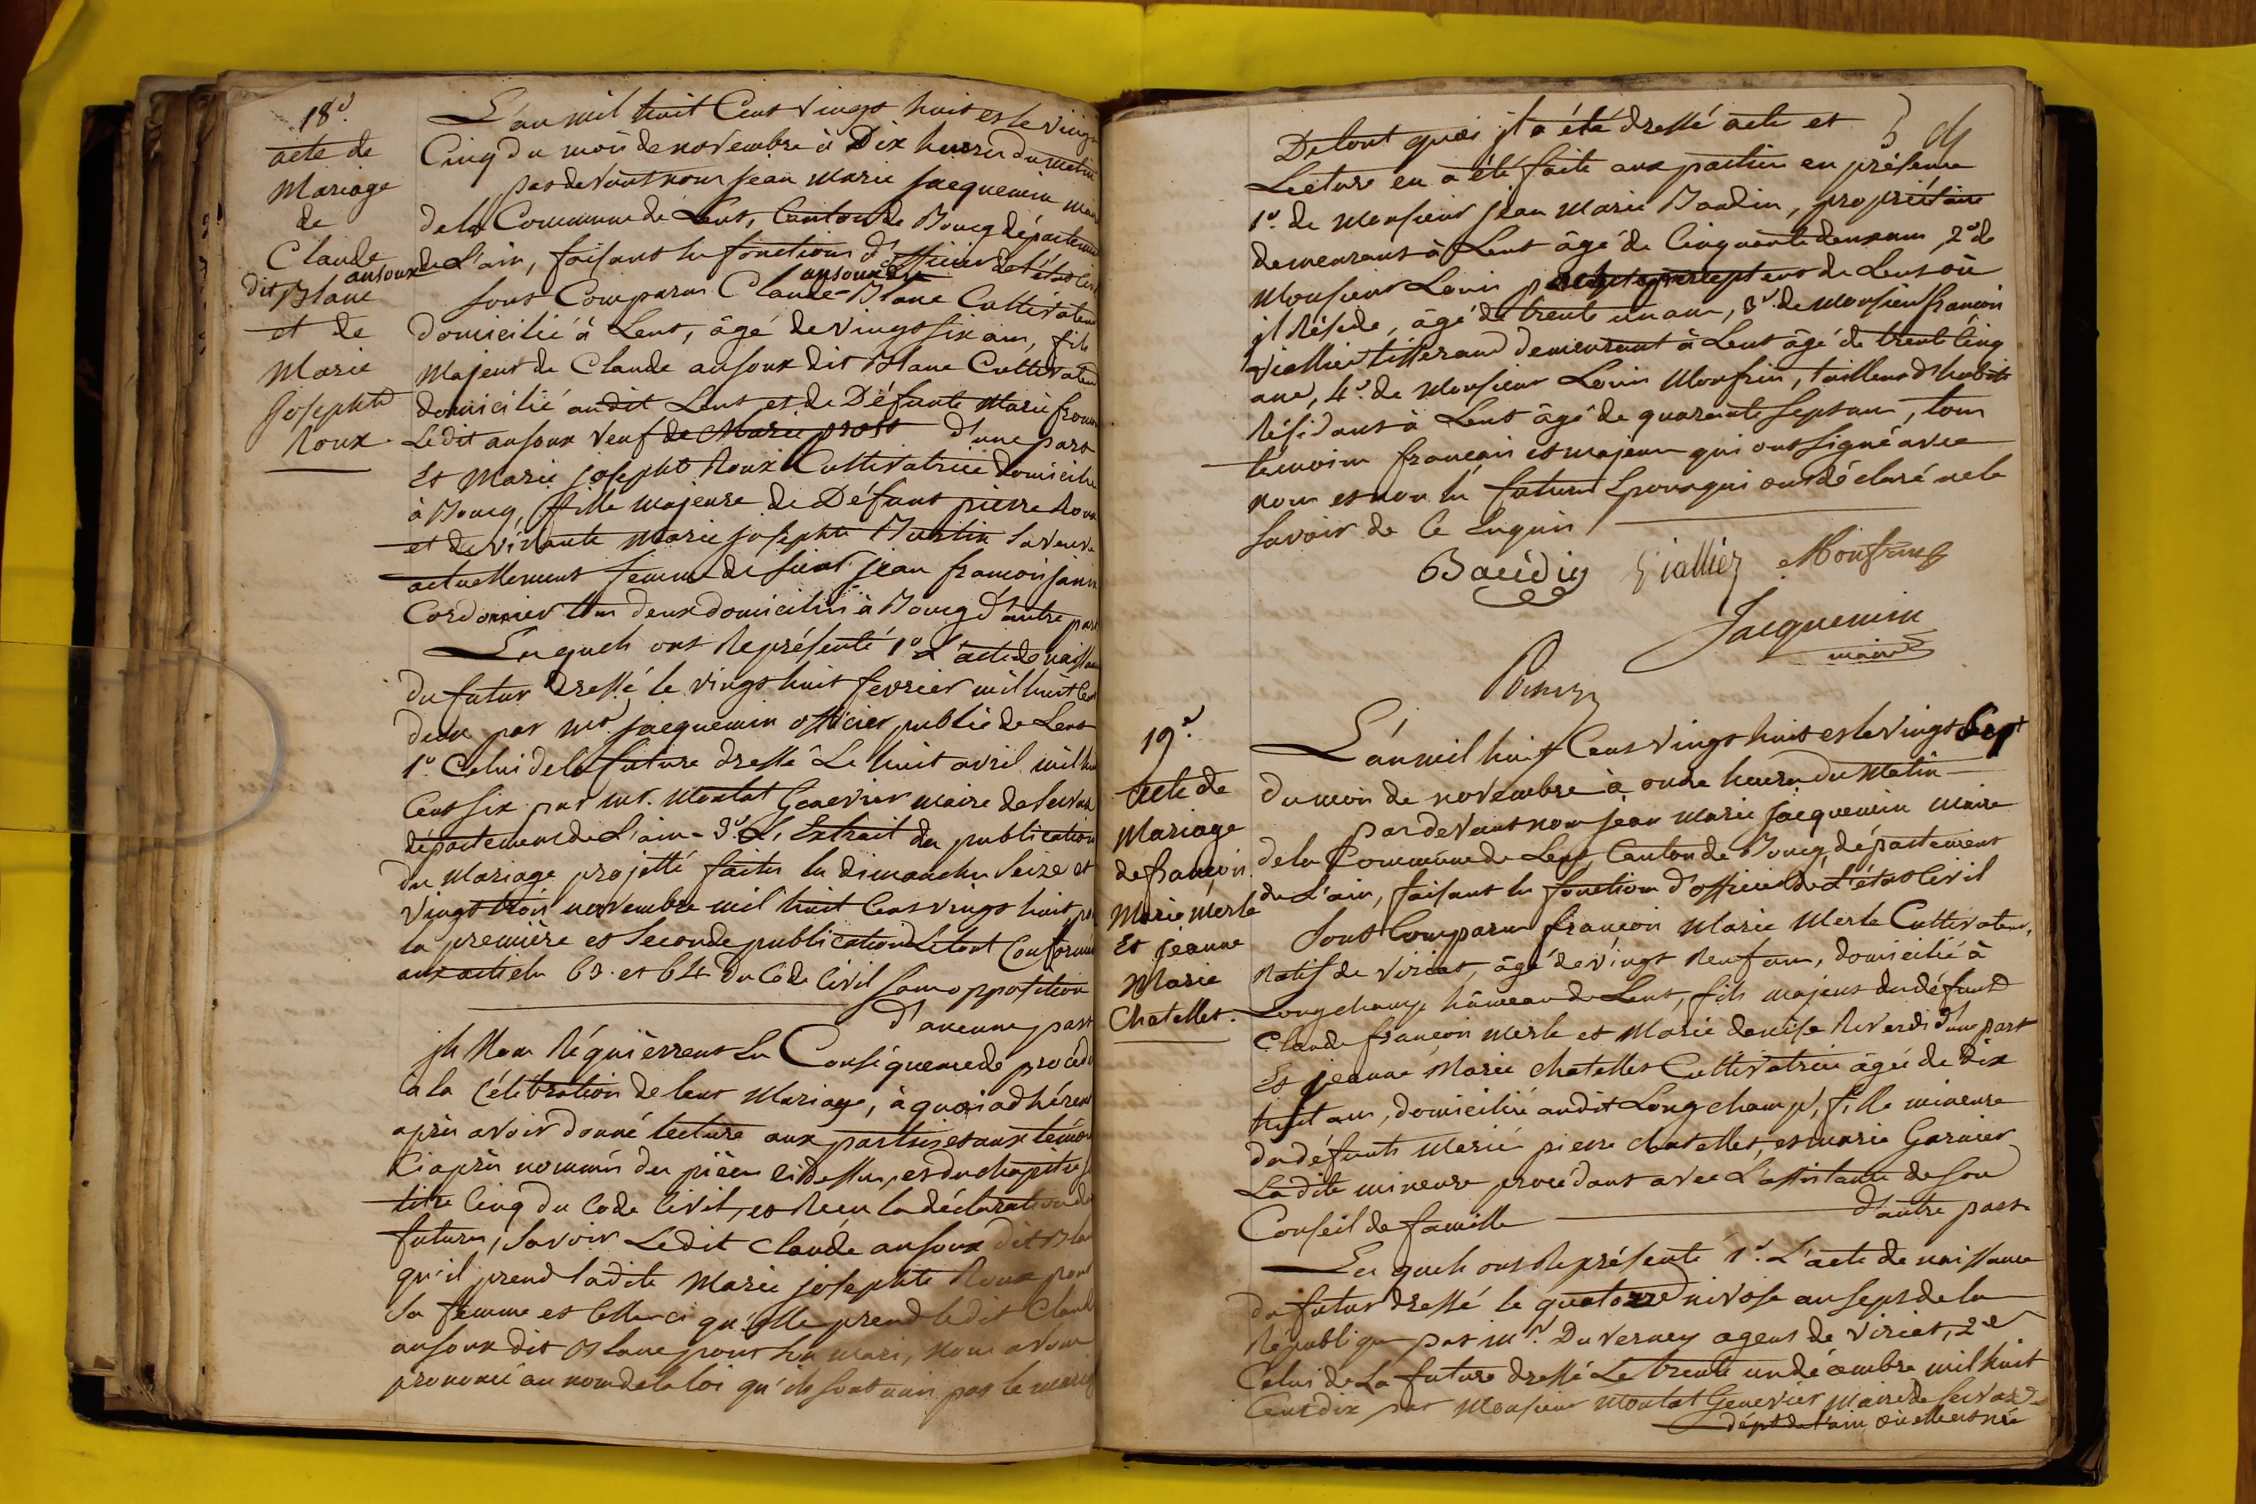 18e.
acte de
Mariage
de
Claude
ansoux
dit Blanc
et de
Marie
Josephte
Roux.
L'an mil huit Cent vingt huit et le vingt
Cinq du mois de novembre à Dix heures du matin
par devant nous jean marie jacquemin maire
de la Commune de Lent, Canton de Bourg département
de L'ain, faisant les fonctions d'officier de l'état Civil
ansoux dit
sont Comparus Claude Blanc Cultivateur
domicilié à Lent, âgé de vingt six ans, fils
majeur de Claude ansoux dit Blanc Cultivateur
domicilié audit Lent et de Défunte Marie
Ledit ansoux veuf de Marie prost d'une part
Et Marie josephte Roux Cultivatrice domiciliée
à Bourg, fille majeure de Défunt pierre Roux
et de vivante Marie josephte Burtin sa veuve
actuellement femme de sieur jean francois janin
Cordonnier tous deux domiciliés à Bourg d'autre part
Lesquels ont Représenté 1o. L'acte de naissance
du futur dressé le vingt huit fevrier mil huit Cent
deux par mr. jacquemin officier public de Lent
1o. Celui de la future dressé Le huit avril mil huit
Cent six par mr. Montat Genevier maire de Servas
département de L'ain. 3o. L'Extrait des publications
du Mariage projetté faites les dimanches Seize et
vingt trois novembre mil huit Cent vingt huit, pour
la première et Seconde publication Le tout Conforme
aux articles 63. et 64 du Code Civil sans opposition
d'aucune part
ils Nous Réquièrrent En Conséquence de procéder
à la Célébration de leur Mariage, à quoi adhérent
après avoir donné lecture aux parties et aux témoins
Ci après nommés des pièces ci dessus, et du chapitre
titre Cinq du Code Civil, et Recu la déclaration des
futurs, Savoir Ledit Claude ansoux dit Blanc
qu'il prend ladite Marie josephte Roux pour
Sa femme et Celle ci qu'Elle prend ledit Claude
ansoux dit Blanc pour son mari, Nous avons
prononcé au nom de la loi qu'ils sont unis par le mariage
De tout quoi il a été dressé acte et
Lecture en a été faite aux parties en présence
1o. de Monsieur jean Marie Baudin, propriétaire
demeurant à Lent âgé de Cinquante deux ans 2o. de
Monsieur Louis percepteur de Lent où
il Réside, âgé de trente un ans, 3o. de Monsieur françois
Viallier tisserand demeurant à Lent âgé de trente Cinq
ans, 4o. de Monsieur Louis Monfrin, tailleur d'habits
Résidant à Lent âgé de quarante Sept ans, tous
temoins francais et majeurs qui ont signé avec
nous et non les futurs Epoux qui ont déclaré ne le
Savoir de Ce Enquis
Baudin Viallier Monfrin
Jacquemin
maire
19e.
Acte de
Mariage
de françois
Marie Merle
Et jeanne
Marie
Chatellet.
L'an mil huit Cent vingt huit et le vingt Sept
du mois de novembre à onze heures du Matin
par devant nous jean marie jacquemin maire
de la Commune de Lent, Canton de Bourg, département
de L'ain, faisant les fonctions d'officier de L'état Civil
Sont Comparus françois Marie Merle Cultivateur,
Natif de viriat, âgé de vingt Neuf ans, domicilié à
Longchamp hâmeau de Lent, fils majeur des défunts
Claude françois Merle et Marie denise Reverdi d'une part
Et jeanne Marie Chatellet Cultivatrice âgée de Dix
huit ans, domiciliée audit Longchamp, fille mineure
des défunts Mariés pierre Chatellet, et marie Garnier
Ladite mineure procédant avec L'assistance de son
Conseil de famille d'autre part
Lesquels ont Représenté 1o. L'acte de naissance
du futur dressé le quatorze nivose an Sept de la
République par mr. Duverney agent de viriat, 2o
Celui de La future dressé Le trente un décembre mil huit
Cent dix par Monsieur Montat Genevier Maire de Servas
dépt. de l'ain, où elle est née